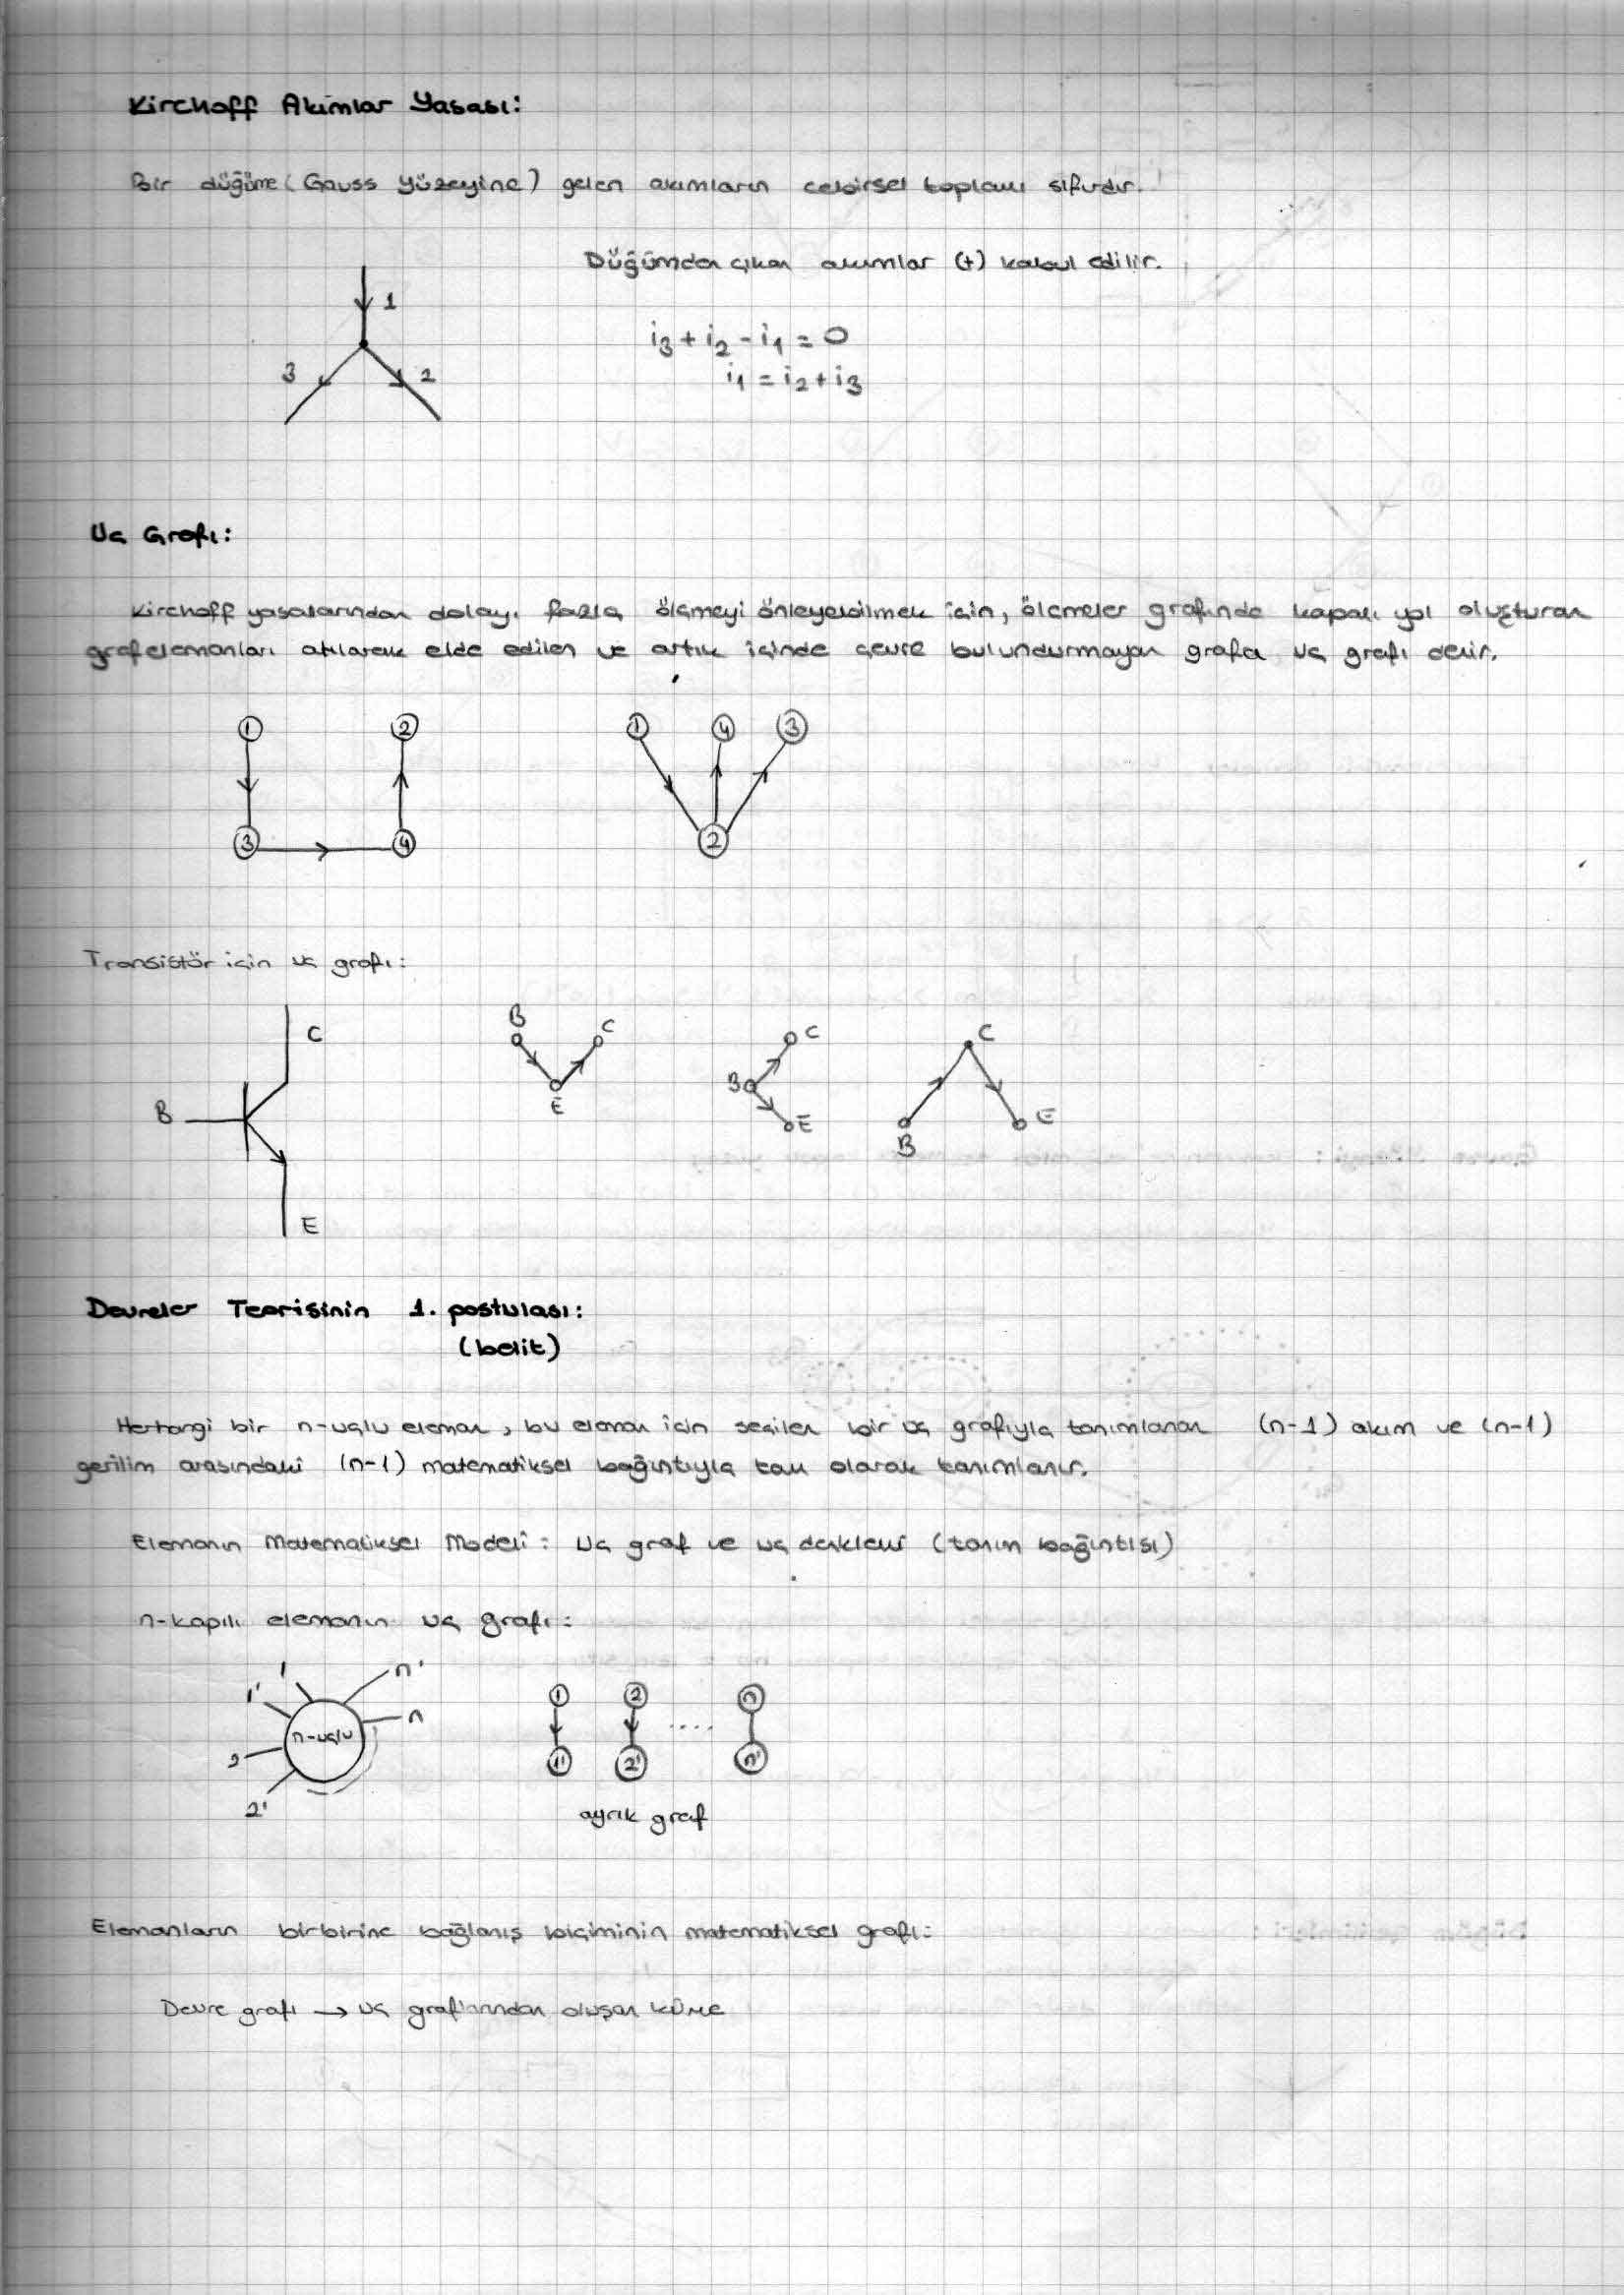 Kirchoff Akımlar Yasası:
Bir düğüme (Gauss Yüzeyine) gelen akımların cebirsel toplamı sıfırdır.
Düğümden çıkan akımlar (+) kabul edilir.
1
3
2
i3 + i2 - i1 = 0
i1 = i2 + i3
Uç Grafı:
Kirchoff yasalarından dolayı fazla ölçmeyi önleyebilmek için, ölçmeler grafında kapalı yol oluşturan
graf elemanları atılarak elde edilen ve artık içinde çevre bulundurmayan grafa uç grafı denir.
1 2 1 4 3
3 4 2
Transistör için uç grafı:
C
B
E
B C
E
C
B
E
C
B E
Devreler Teorisinin 1. postulası:
(belit)
Herhangi bir n-uçlu eleman, bu eleman için seçilen bir uç grafıyla tanımlanan (n-1) akım ve (n-1)
gerilim arasındaki (n-1) matematiksel bağıntıyla tam olarak tanımlanır.
Elemanın Matematiksel Modeli: Uç graf ve uç denklemi (tanım bağıntısı)
n-kapılı elemanın uç grafı:
1 n'
1' n
n-uçlu
2
2'
1 2 n
....
1' 2' n'
ayrık graf
Elemanların birbirine bağlanış biçiminin matematiksel grafı:
Devre grafı → uç graflarından oluşan küme